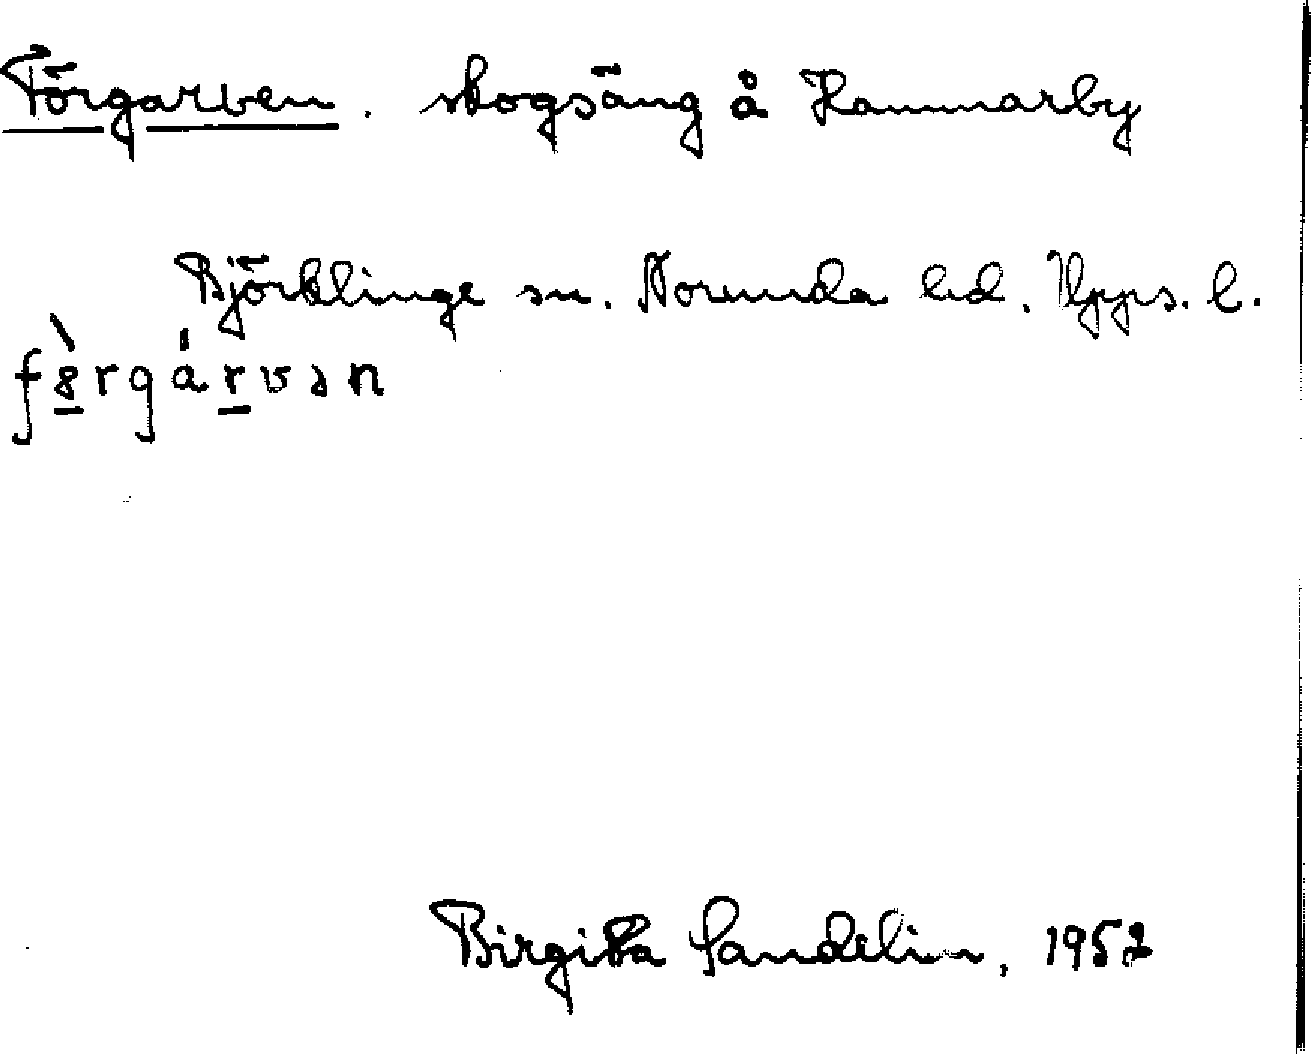 Förgarven. skogsäng å Hammarby
Björklinge sn. Norunda hd. Upps. l.
fə̀rgárvən
Birgitta Sandelin, 1952